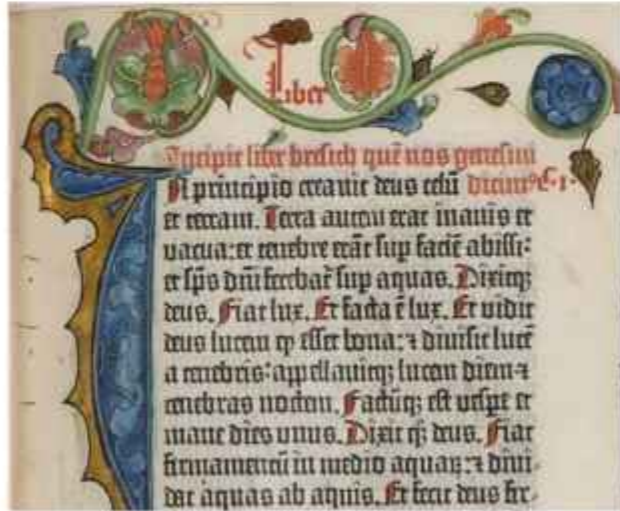 Liber
Incipit liber bresich quē nos genesim
In principio creavit deus celū dicim⁹ C·1·
et terram. Terra autem erat inanis et
vacua: et tenebre erāt sup faciē abissi:
et sp̄s dn̄i ferebat̄ sup aquas. Dixitqꝫ
deus. Fiat lux. Et facta ē lux. Et vidit
deus lucem ꝙ esset bona: ⁊ divisit lucē
a tenebris: appellavitqꝫ lucem diem ⁊
tenebras noctem. Factūqꝫ est vespe et
mane dies unus. Dixit qꝫ deus. Fiat
firmamentū in medio aquaꝝ: ⁊ divi-
dat aquas ab aquis. Et fecit deus fir-